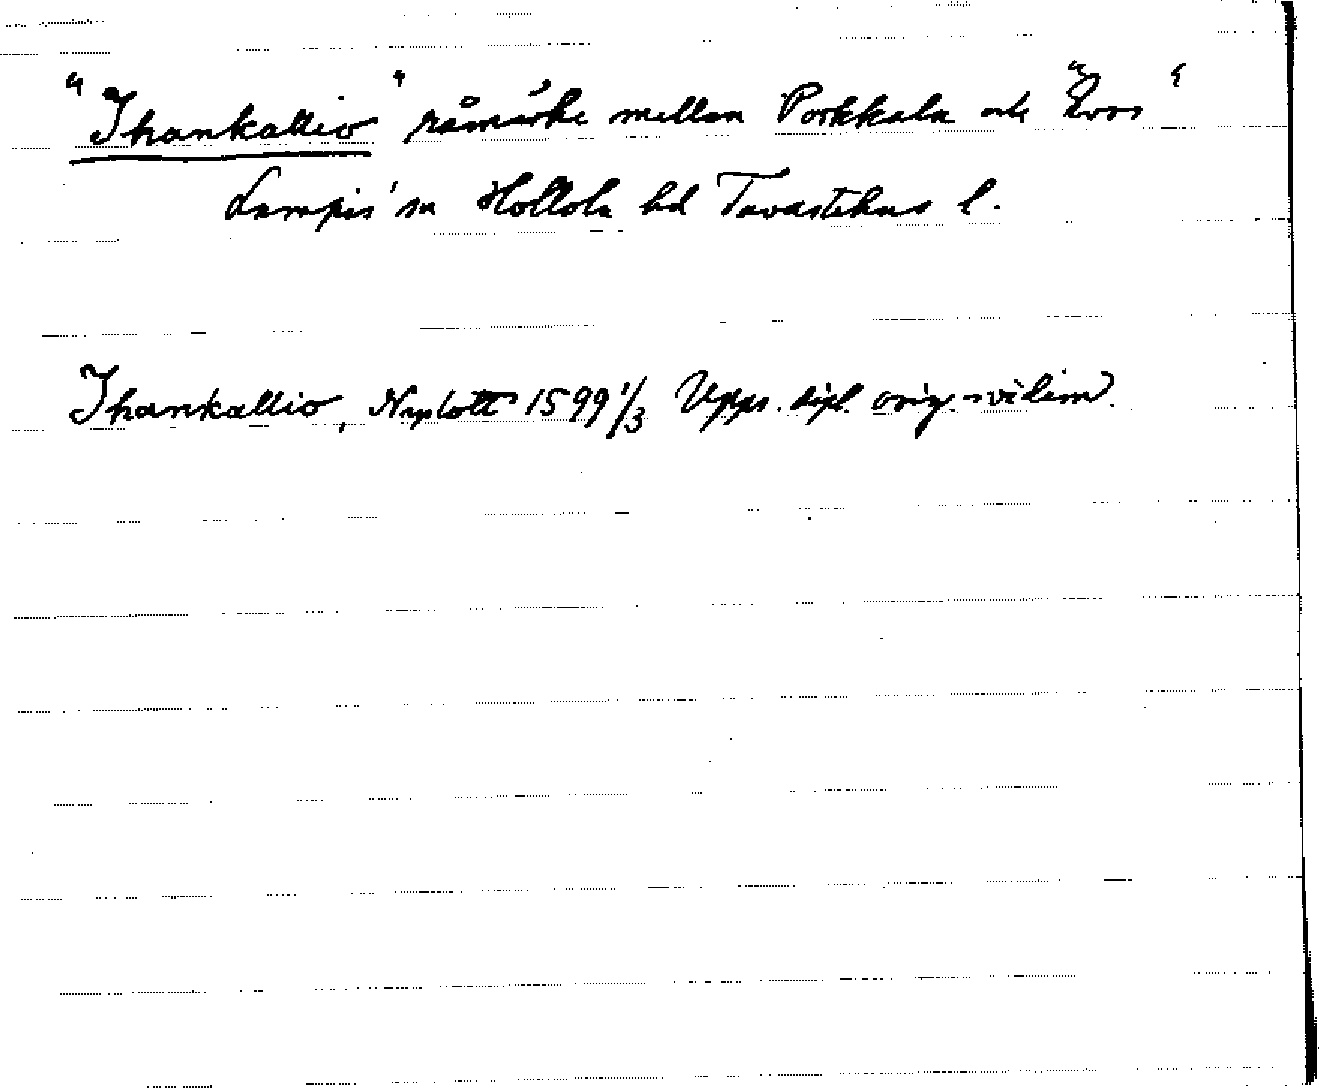 "Ihankallio" råmärke mellan Porkkala och "Eros"
Lampis' sn Hollola hd Tavastehus l.
Ihankallio, Nyslott 1599 1/3 Upps. dipl. orig.-vidim.